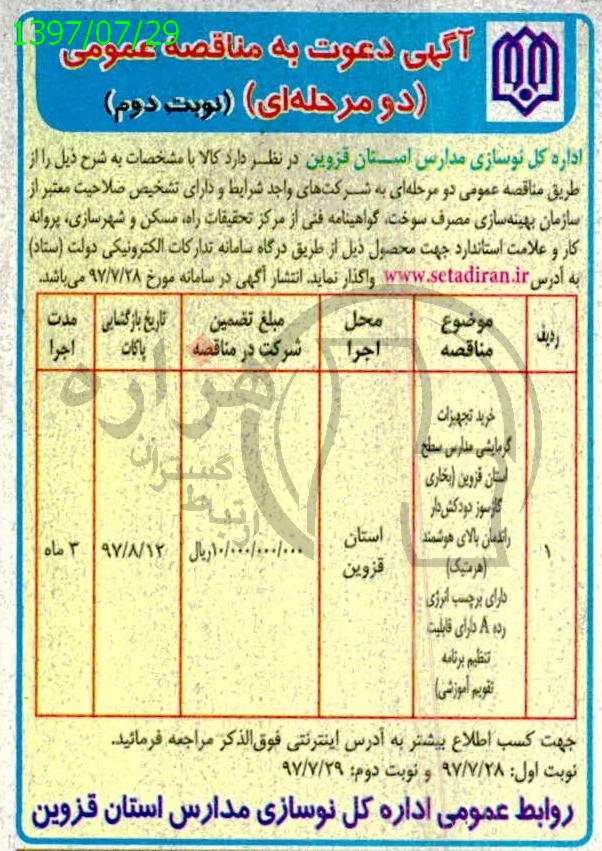 1397/07/29
آگهی دعوت به مناقصه عمومی
(دو مرحله‌ای) (نوبت دوم)
اداره کل نوسازی مدارس استان قزوین در نظر دارد کالا با مشخصات به شرح ذیل را از
طریق مناقصه عمومی دو مرحله‌ای به شرکت‌های واجد شرایط و دارای تشخیص صلاحیت معتبر از
سازمان بهینه‌سازی مصرف سوخت، گواهینامه فنی از مرکز تحقیقات راه، مسکن و شهرسازی، پروانه
کار و علامت استاندارد جهت محصول ذیل از طریق درگاه سامانه تدارکات الکترونیکی دولت (ستاد)
به آدرس www.setadiran.ir واگذار نماید. انتشار آگهی در سامانه مورخ ۹۷/۷/۲۸ می‌باشد.
ردیف
موضوع
مناقصه
محل
اجرا
مبلغ تضمین
شرکت در مناقصه
تاریخ بازگشایی
پاکات
مدت
اجرا
۱
خرید تجهیزات
گرمایشی مدارس سطح
استان قزوین (بخاری
گازسوز دودکش‌دار
راندمان بالای هوشمند
(هرمتیک)
دارای برچسب انرژی
رده A دارای قابلیت
تنظیم برنامه
تقویم آموزشی)
استان
قزوین
۱۰/۰۰۰/۰۰۰/۰۰۰ریال
۹۷/۸/۱۲
۳ ماه
هزاره
گستران
ارتباط
جهت کسب اطلاع بیشتر به آدرس اینترنتی فوق‌الذکر مراجعه فرمائید.
نوبت اول: ۹۷/۷/۲۸ و نوبت دوم: ۹۷/۷/۲۹
روابط عمومی اداره کل نوسازی مدارس استان قزوین